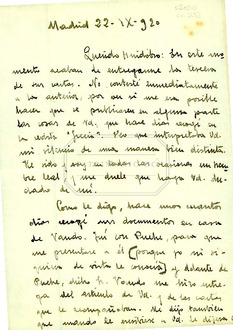 Madrid 22-IX-920
Querido Huidobro: En este mo-
mento acaban de entregarme la tercera
de sus cartas. No contesté inmediatamente
a la anterior, por ver si me era posible
hacer que se publicaran en alguna parte
las cosas de Vd. que hace días recogí en
la revista "Grecia". Veo que interpretaba Vd.
mi silencio de una manera bien distinta.
He sido y soy en todas las ocasiones un hom-
bre leal y me duele que haya Vd. du-
dado de mí.
Como le digo, hace unos cuantos
días recogí sus documentos en casa
de Vando. Fuí con Puche, para que
me presentara a él (porque yo ni si-
quiera de vista le conocía) y delante de
Puche, dicho Sr. Vando me hizo entre-
ga del artículo de Vd. y de las cartas
que le acompañaban. Me dijo también
que cuando le